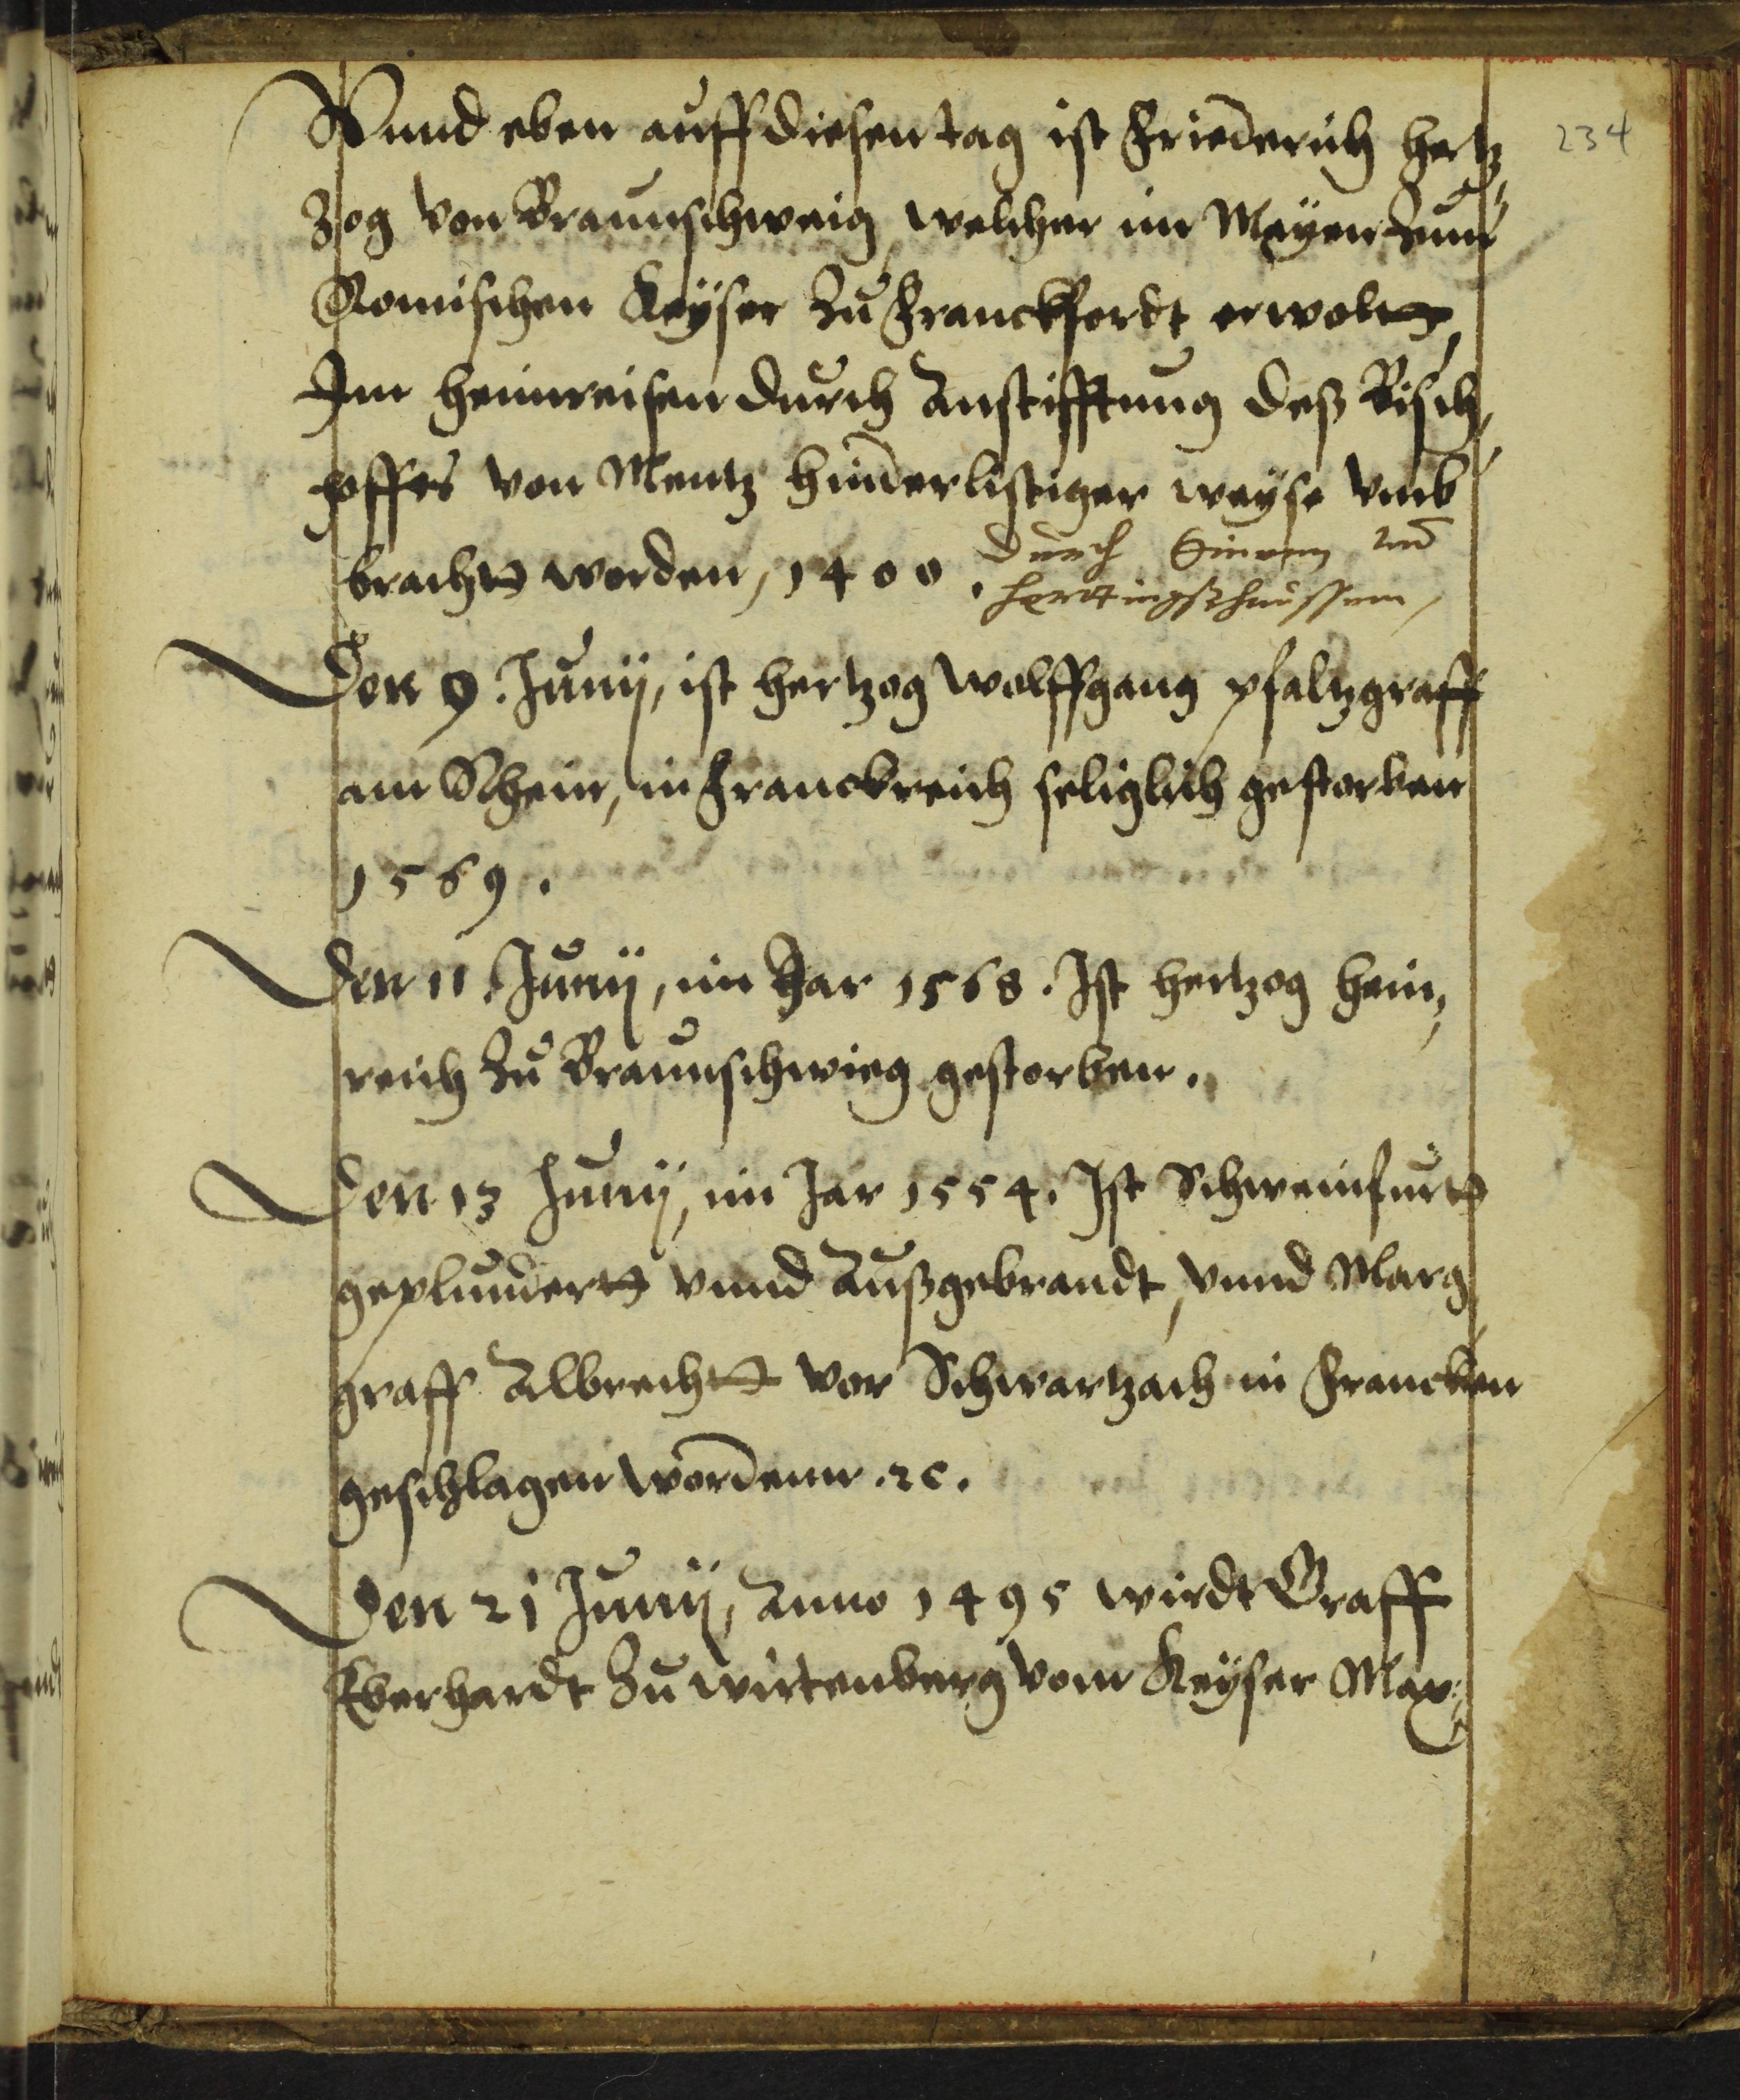 Vnnd eben auff diesen tag ist Friederich Hertz
234
zog von Braunschweig, welcher im Meyen zum
Romischen Keÿser zu Franckfordt erwelt,
Im heimreisen durch Anstifftung deß Bisch,
hoffes von Mentz hinderlistiger weÿse vmb
bracht worden, 1400.
durch Einen von
Herttingßhaussen,
Den 9. Junij, ist Hertzog Wolffgang pfaltzgraff
am Rhein, in Franckreich seliglich gestorben
1569.
Den 11. Junij, im Jar 1568. Ist Hertzog Hein,
reich zu Braunschwieg gestorben.
Den 13 Junij, im Jar 1554. Ist Schweinfurt
geplundert vnnd Außgebrandt, vnnd Marg
graff Albrecht vor Schwartzach in Francken
geschlagen wordenn. ꝛc.
Den 21 Junij, Anno 1495 wirdt Graff
Eberhardt zu Wirtenberg vom Keÿser Max,